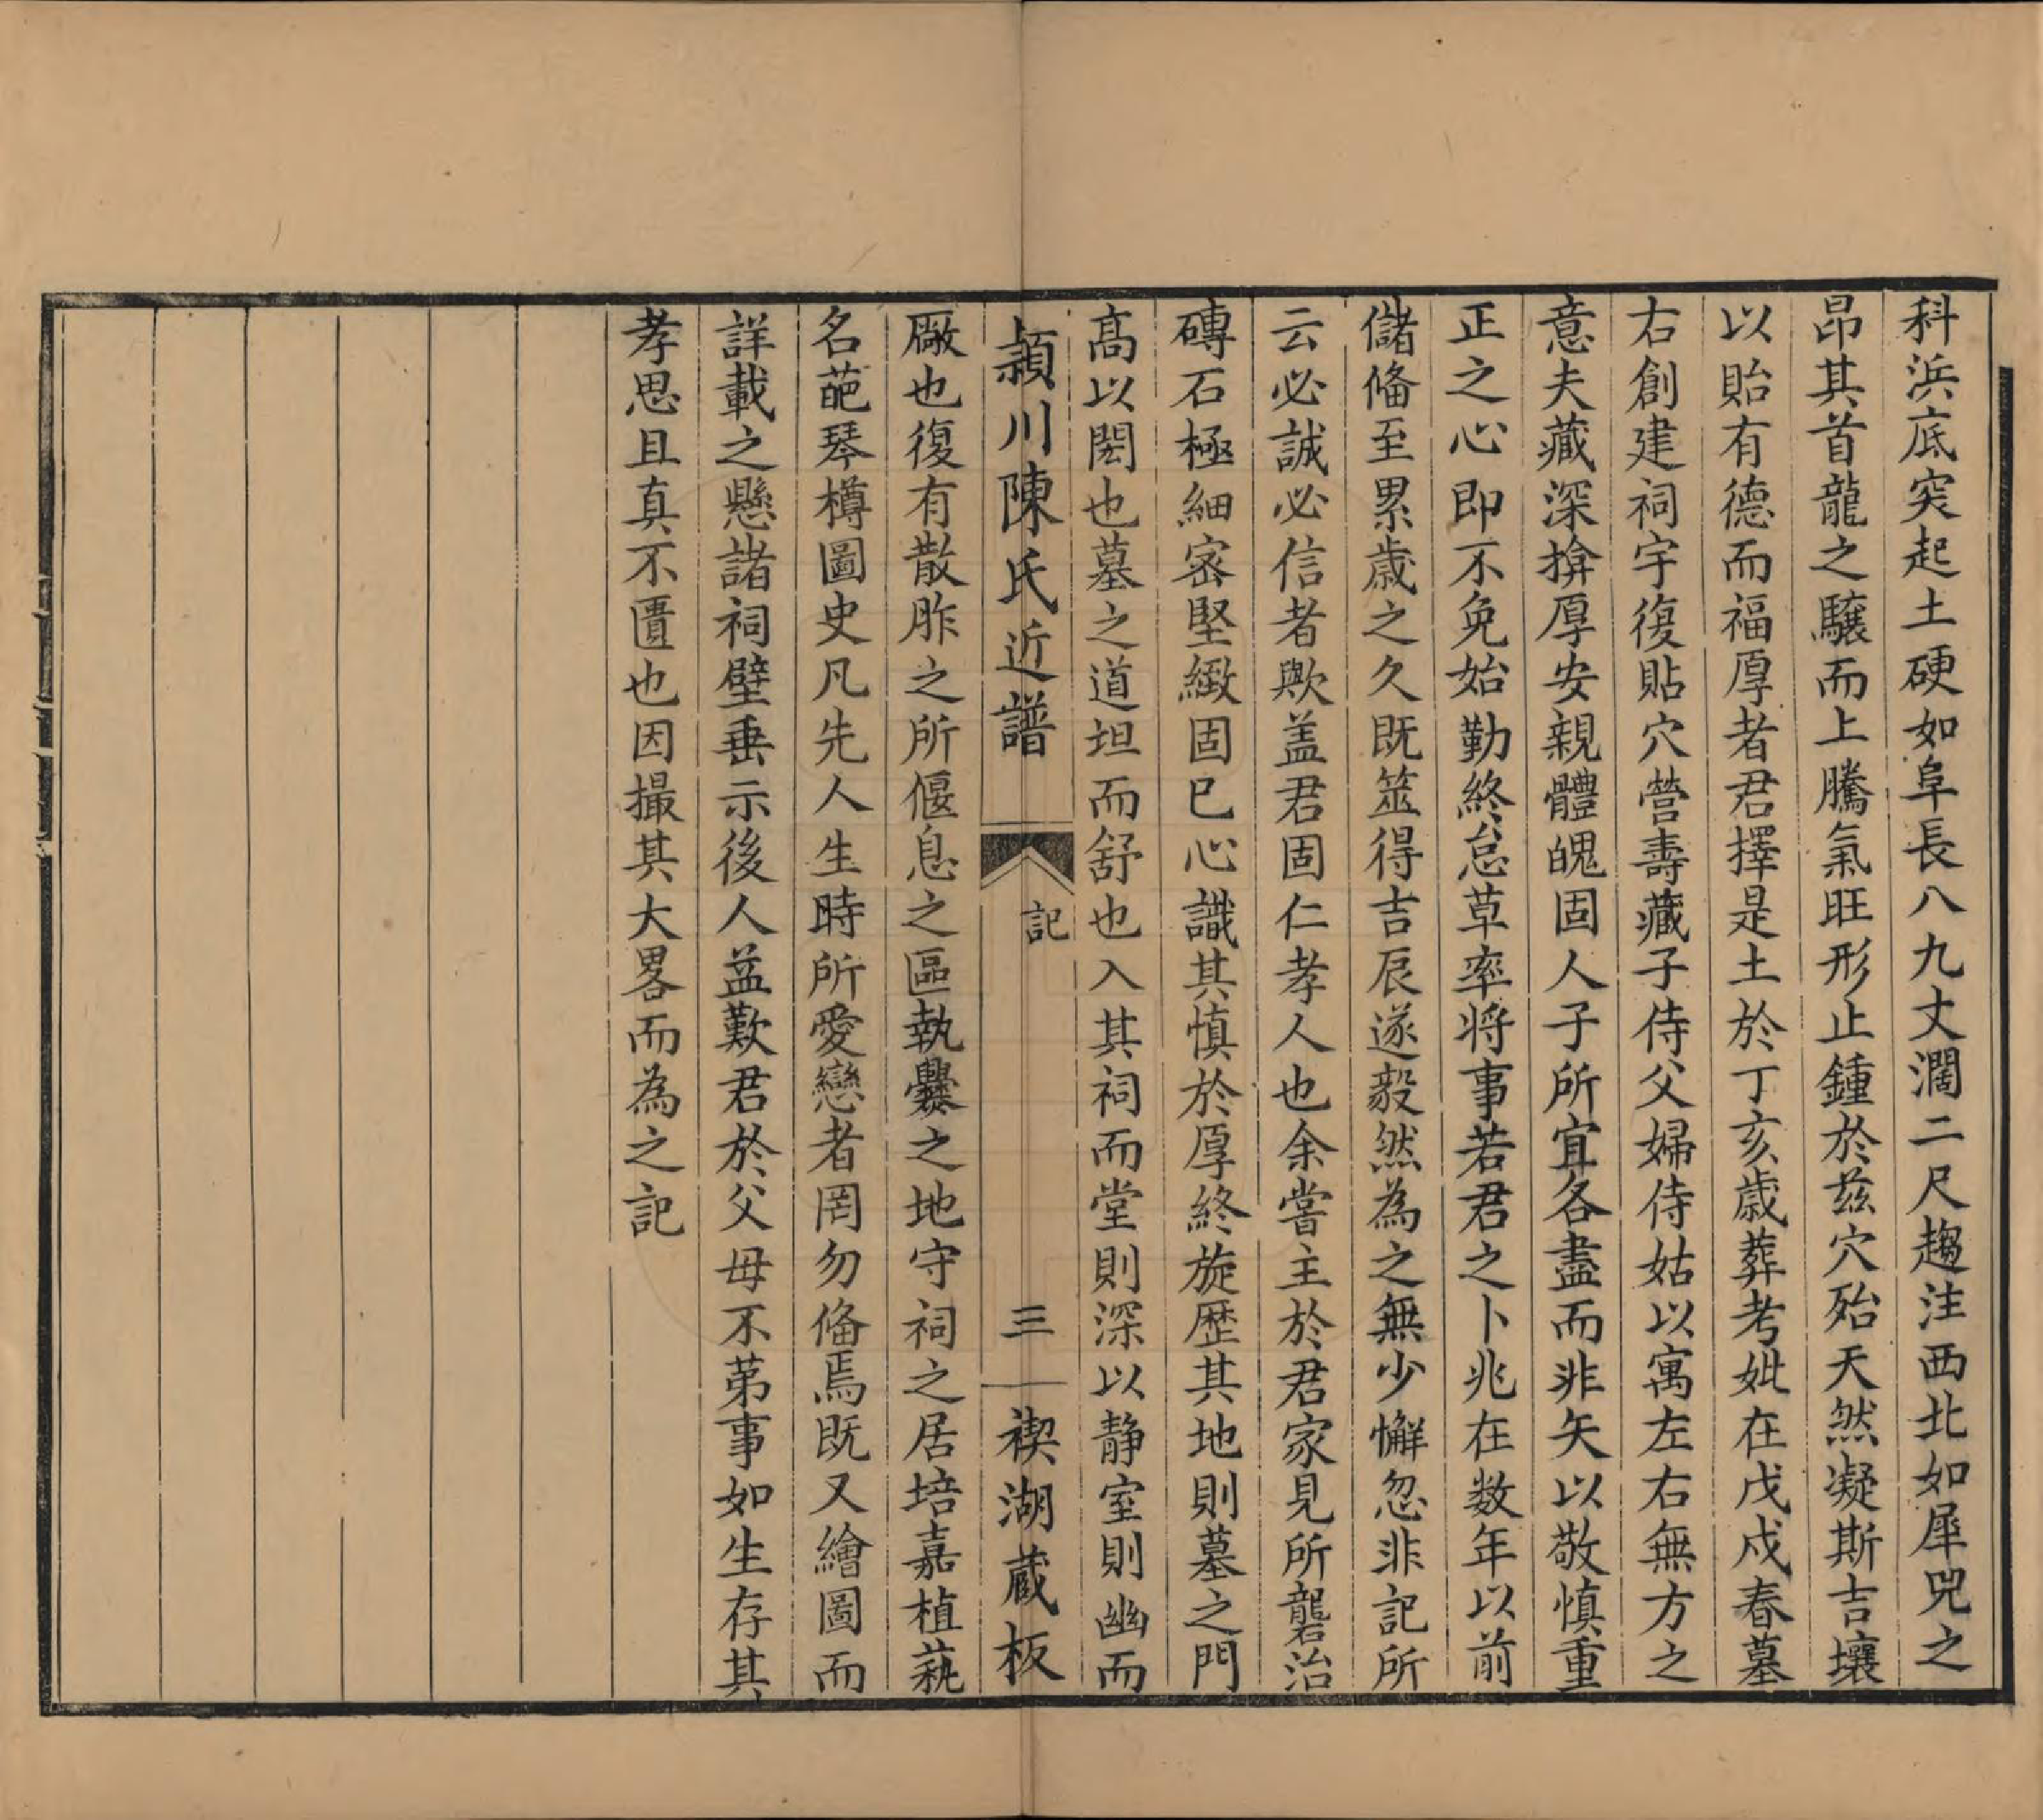 科浜底突起土硬如阜長八九丈濶二尺趨注西北如犀兕之
昂其首龍之驤而上騰氣旺形止鍾於兹穴殆天然凝斯吉壤
以貽有德而福厚者君擇是土於丁亥歲葬考妣在戊戌春墓
右創建祠宇復貼穴營壽藏子侍父婦侍姑以寓左右無方之
意夫藏深揜厚安親體魄固人子所宜各盡而非矢以敬慎重
正之心即不免始勤終怠草率将事若君之卜兆在数年以前
儲偹至累歲之久既筮得吉辰遂毅然為之無少懈忽非記所
云必誠必信者歟盖君固仁孝人也余嘗主於君家見所礱治
磚石極細宻堅緻固已心識其慎於厚終旋歴其地則墓之門
髙以閎也墓之道坦而舒也入其祠而堂則深以静室則幽而
穎川陳氏近譜 記 三 禊湖蔵板
厰也復有散胙之所偃息之區執爨之地守祠之居培嘉植蓺
名葩琴樽圖史凡先人生時所愛戀者罔勿偹焉既又繪圖而
詳載之懸諸祠壁垂示後人益歎君於父母不苐事如生存其
孝思且真不匱也因撮其大畧而為之記